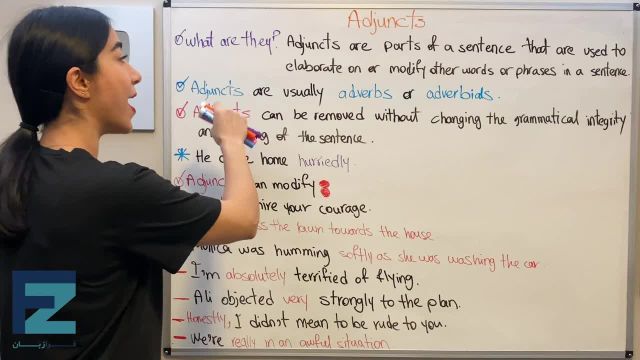 Adjuncts
What are they? Adjuncts are parts of a sentence that are used to
elaborate on or modify other words or phrases in a sentence.
Adjuncts are usually adverbs or adverbials.
can be removed without changing the grammatical integrity
of the sentence.
* He home hurriedly.
modify:
your courage.
the lawn towards the house
was humming softly as she was washing the car
- I'm absolutely terrified of flying.
- Ali objected very strongly to the plan.
- Honestly, I didn't mean to be rude to you.
- We're really in an awful situation
FZ
فرازبان